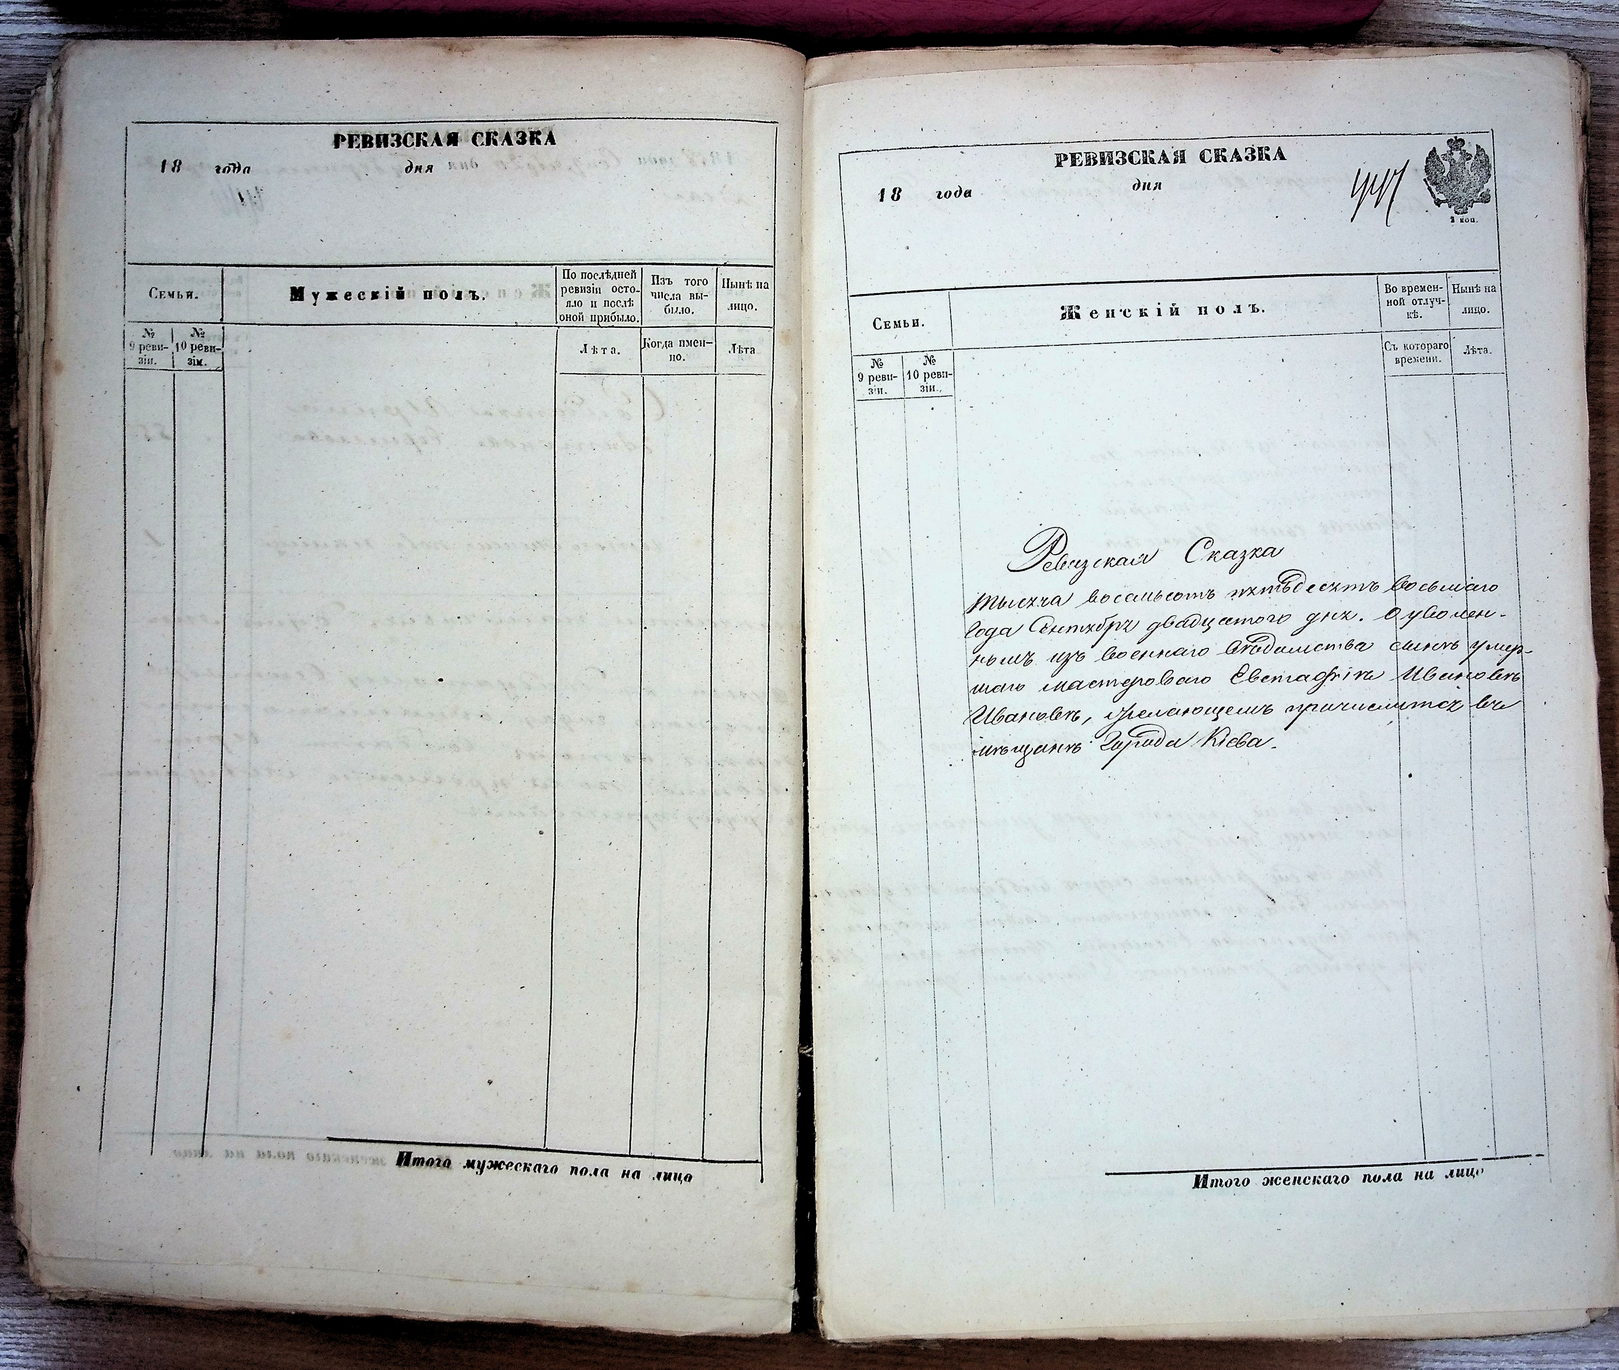 РЕВИЗСКАЯ СКАЗКА
18 года дня
Семьи.
Мужескій полъ.
По послѣдней
ревизіи осто-
яло и послѣ
оной прибыло.
Изъ того
числа вы-
было.
Нынѣ на
лицо.
№
9 реви-
зіи.
№
10 реви-
зіи.
Лѣта.
Когда имен-
но.
Лѣта
Итого мужескаго пола на лицо
РЕВИЗСКАЯ СКАЗКА
18 года дня
447
2 коп.
Семьи.
Женскій полъ.
Во времен-
ной отлуч-
кѣ.
Нынѣ на
лицо.
№
9 реви-
зіи.
№
10 реви-
зіи.
Съ котораго
времени.
Лѣта.
Ревизская Сказка
тысяча восемьсотъ пятьдесятъ восьмаго
года Сентября двадцатого дня. О уволен-
номъ изъ военнаго вѣдомства сынѣ умер-
шаго мастероваго Евстафіѣ Ивановѣ
Ивановѣ, желающемъ причислится въ
мѣщане города Кіева.
Итого женскаго пола на лицо